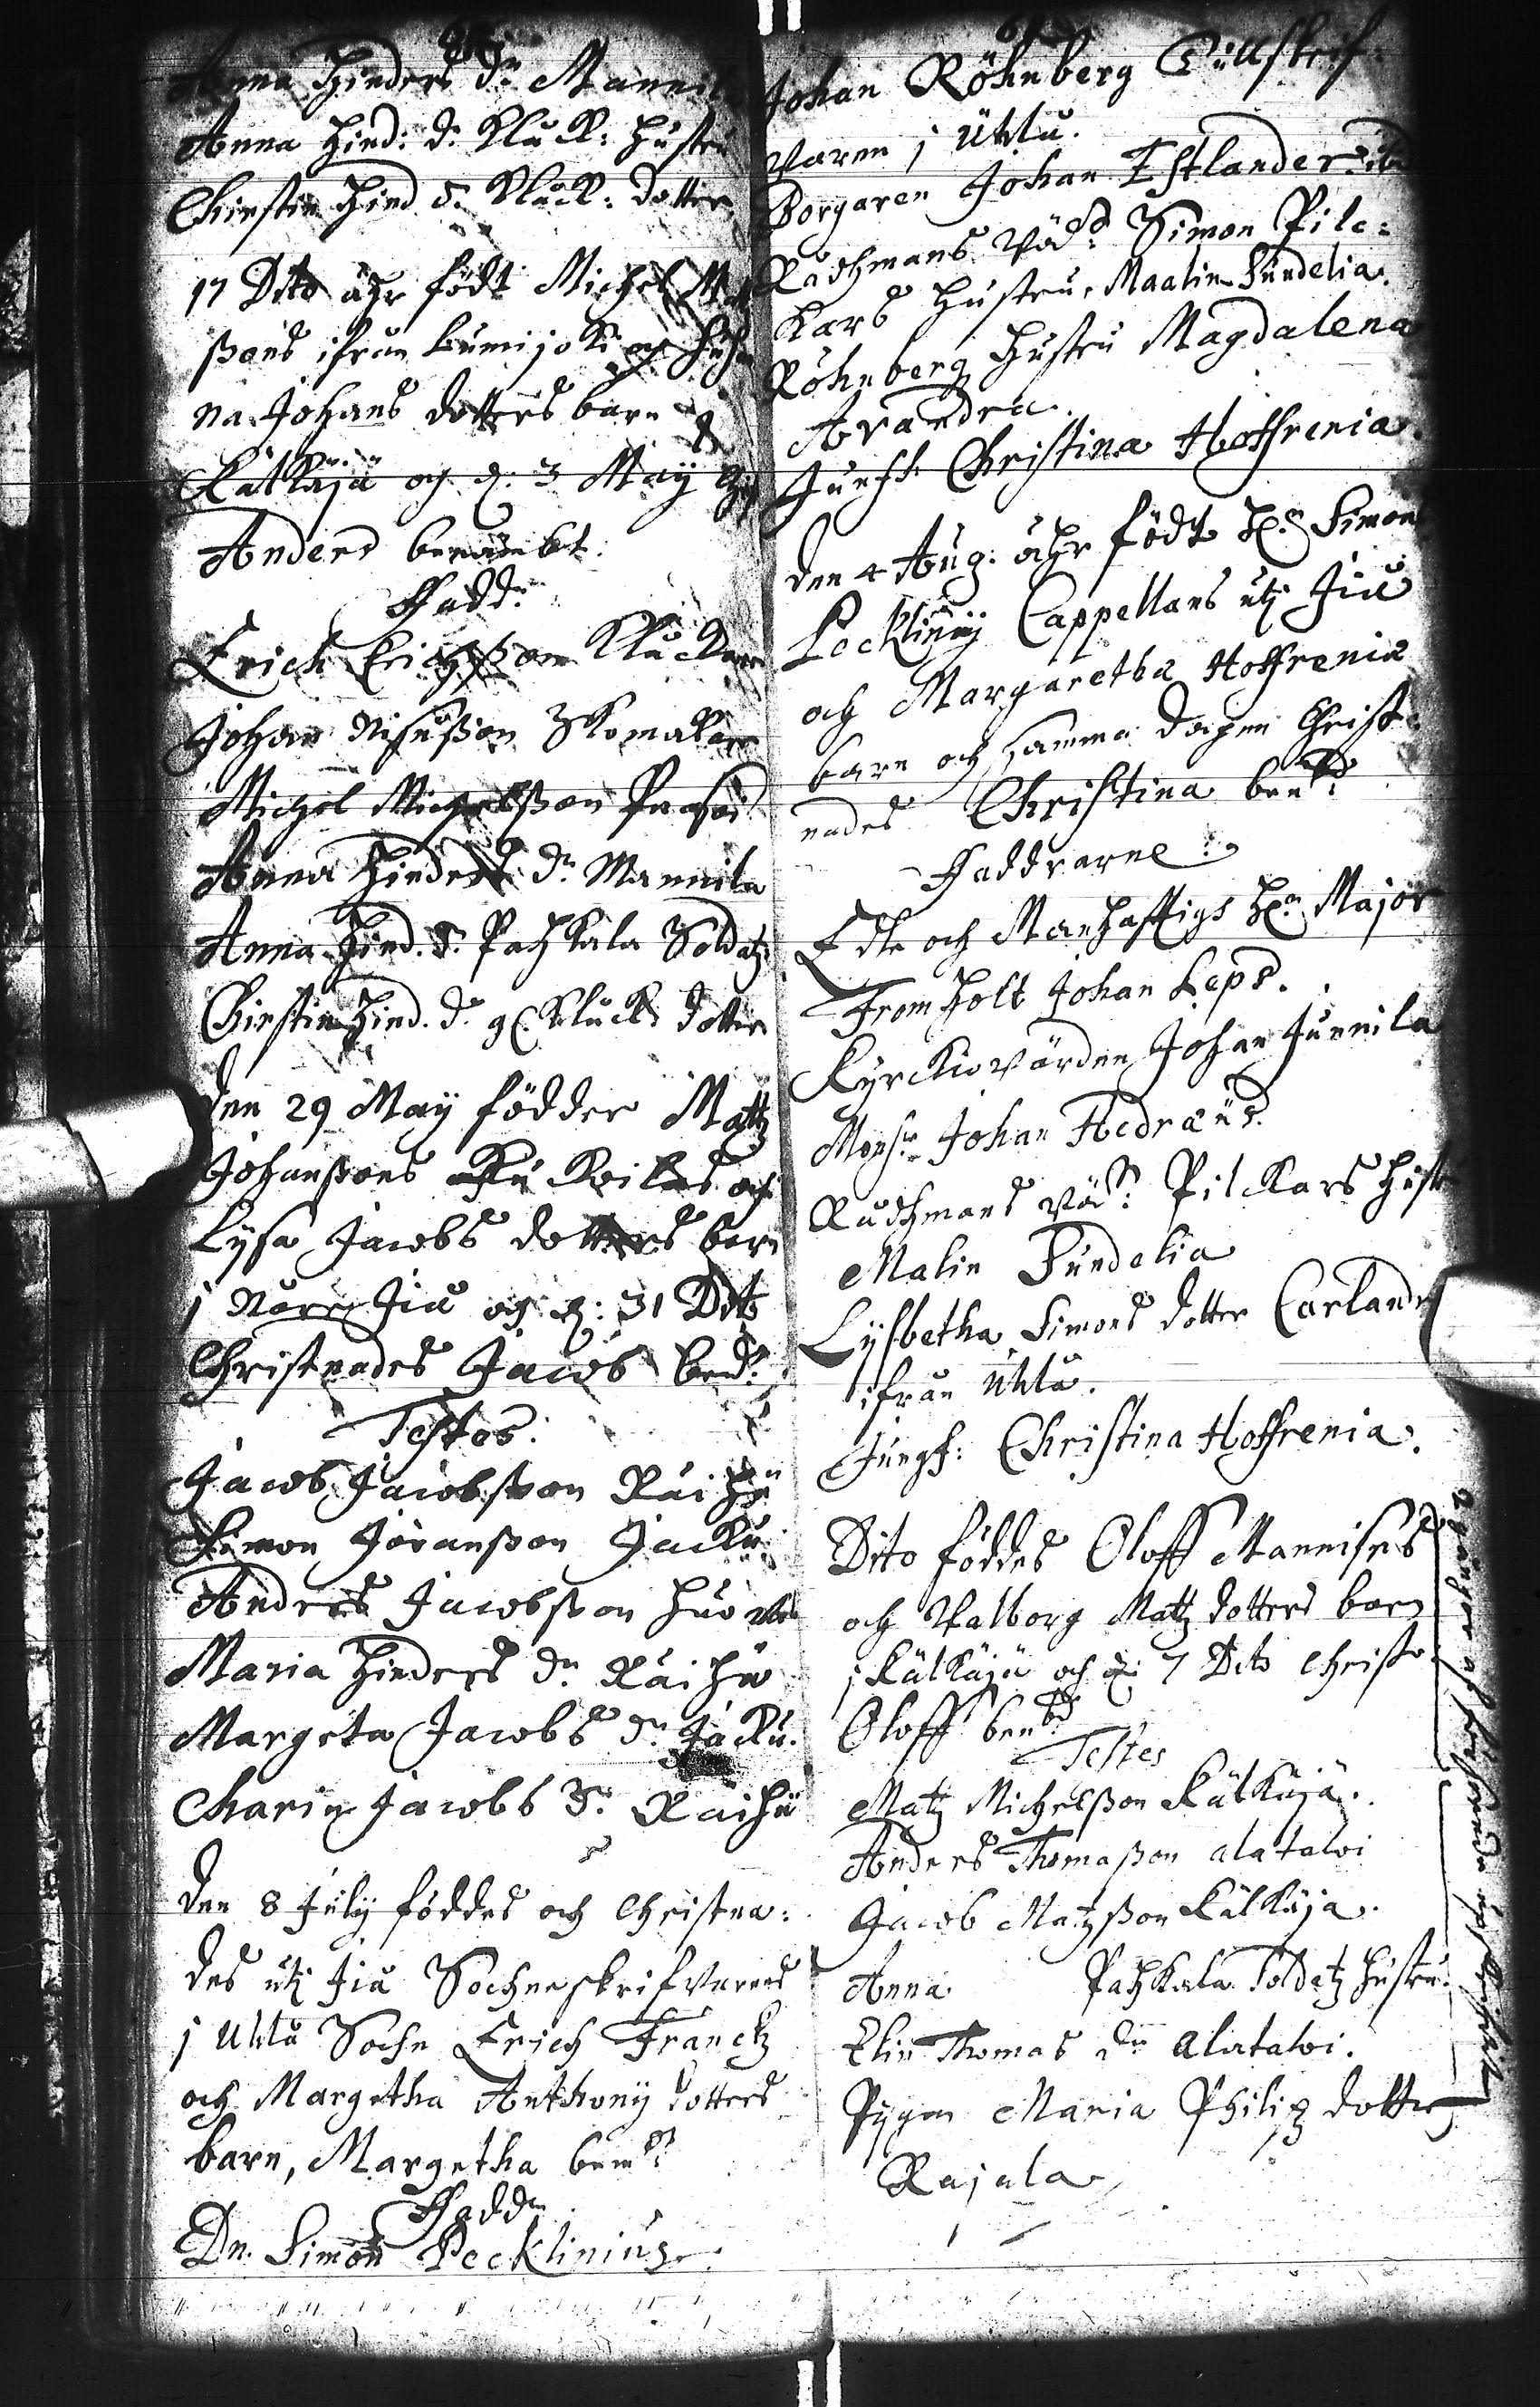 Anna Hinders dr Mannila
Anna Hind: dr Kluck: Hustru
Chirstin Hind dr Kluck: Dotter
17 Dito ähr födt Michel Mat
ßons ifrån Lumijoki och
na Johans dotters barn i
Kälkäjä och d: 3 Maij
Anders benembt.
Fadd:
Erich Erichßon Kluckare
Johan Skomakare
Michel Michelßon
Anna Hinders dr Mannila
Anna Hind. dr Pahkala Soldatz
Chirstin Hind. dr Kluck: dotter
Den 29 Maij föddes Mattz
Johanßons och
Lysa Jacobs dotters barn
i Norr Jiå och d: 31 Dito
Christnades Jacob bend:
Testes:
Jacob Jacobßon Räihä
Simon Göranßon Jacku
Anders Jacobßon
Maria Hinders dr Räihä
Margeta Jacobs dr Jacku.
Charin Jacobs dr Räihä
Den 8 Julij föddes och Christna:
des uti Jiå Sochneskrifvarens
i Uhlå Sochn Erich Franckz
och Margetha Anthonij dotters
barn, Margetha bemt
Fadd
Dn. Simon Pecklinius
Johan Röhnberg Tullskrif
varen i Uhlu.
Borgaren Johan Estlander ib
Rådhmans Simon Pile:
kars Hustru, Maalin Sundelia.
Röhnberg Hustru Magdalena
Arvandra.
Jungfr Christina Hoffrenia.
den 4 Aug: ähr födt Hr Simon
Pecklinij Cappellans uti Jiå
och Margaretha Hoffrenia
barn och samma dagen Christ:
nades Christina benbd
Faddrarne:
Edle och Manhafftigs Hr Major
Fromholt Johan Leps.
Kyrckiovärden Johan Junnila
Monsr Johan Hedræus.
Rådhmans Pilckars Hustr
Malin Sundelia
Lysbetha Simons dotter Carlandr
ifrån Uhlå.
Jungf: Christina Hoffrenia.
Dito föddes Oloff Mannises
och Valborg Mattz dotters barn
i Kälkäjä och d: 7 Dito Christn:
Oloff benbd
Testes
Matz Michelßon Kälkäjä.
Anders Thomaßon alatalvi
Jacob Matzßon Kälkäjä.
Anna Pahkala Soldatz hustru
Elin Thomas dr Alatalvi.
Pygan Maria Philip dotter
Rajala